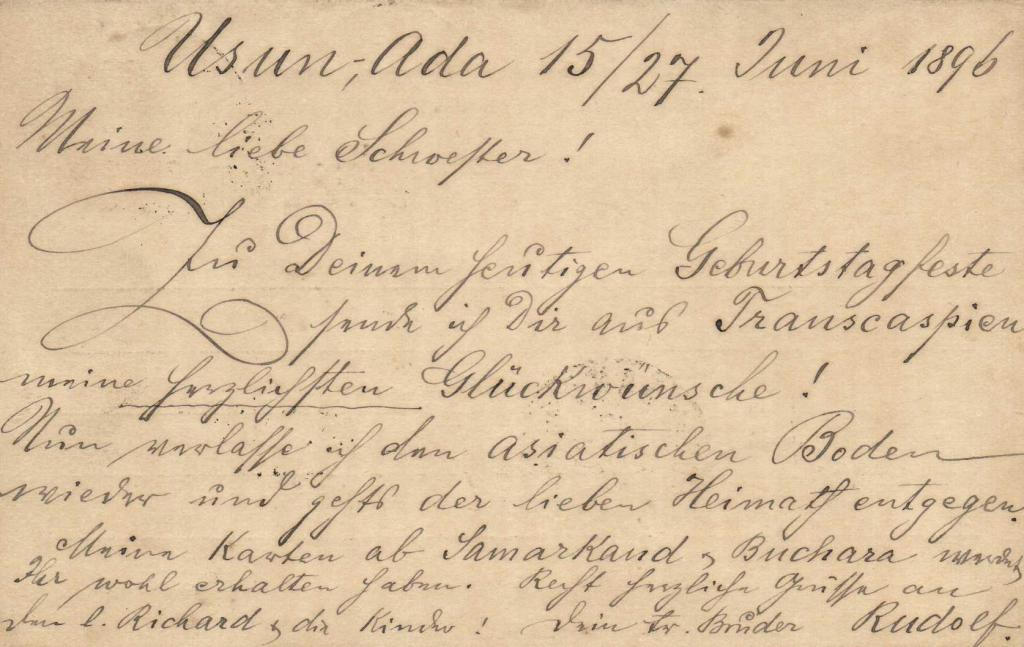 Usun-Ada 15/27. Juni 1896
Meine liebe Schwester!
Zu Deinem heutigen Geburtstagfeste
sende ich Dir aus Transcaspien
meine herzlichsten Glückwünsche!
Nun verlasse ich den asiatischen Boden
wieder und gehts der lieben Heimath entgegen.
Meine Karten ab Samarkand & Buchara werdet
Ihr wohl erhalten haben. Recht herzliche Grüsse an
den l. Richard & die Kinder! Dein tr. Bruder Rudolf.